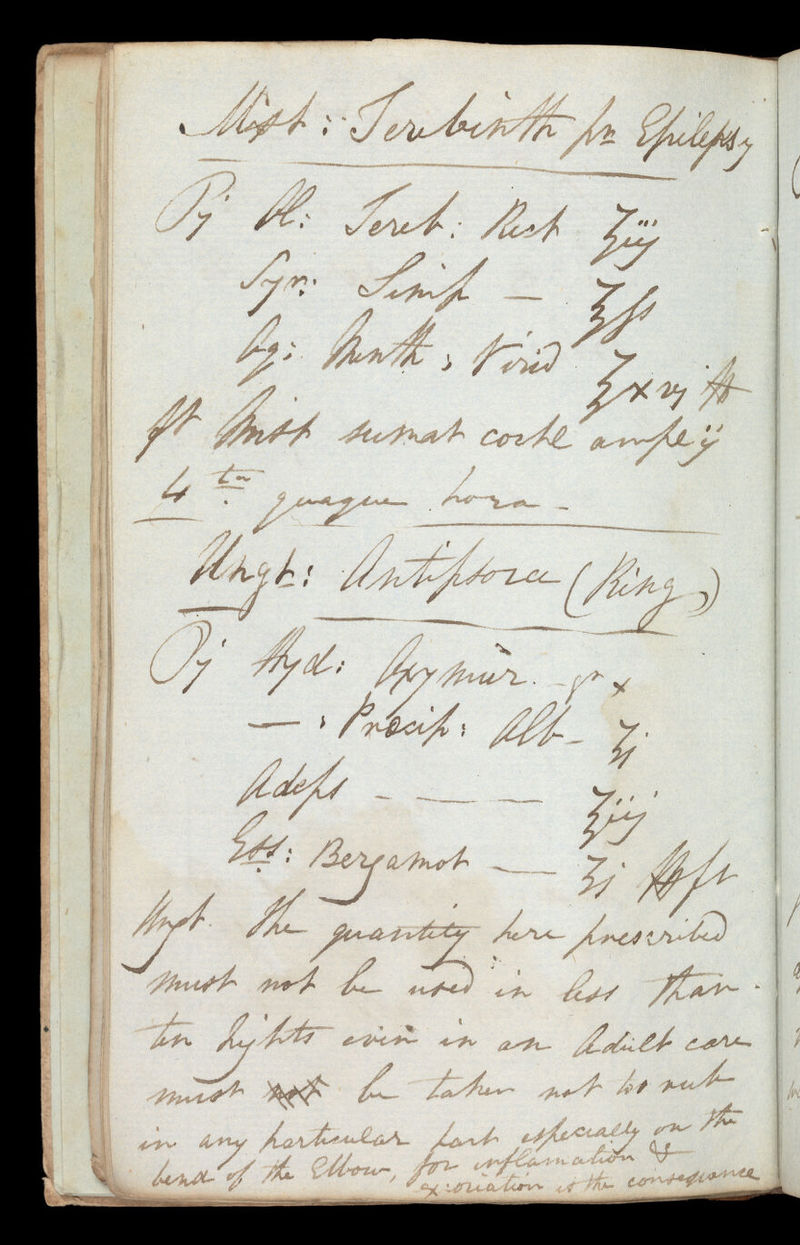 Mist: Terebinth pro Epilepsy
Rj Ol: Tereb: Rect ʒiij
Syr: Simp — ℥ss
Aq: Menth: Virid ℥xvj
ft Mist sumat cochl ampl ij
4ta quaque hora -
Ungt: Antipsorae (Ring)
Rj Hyd: Oxymur. - gr x
— : Præcip: Alb - ʒj
Adeps - — — — ℥iij
Ess: Bergamot — ʒj ft
Ungt. The quantity here prescribed
must not be used in less than
ten Nights even in an Adult care
must not be taken not to rub
in any particular part especially on the
bend of the Elbow, for inflamation &
excoriation is the consequence